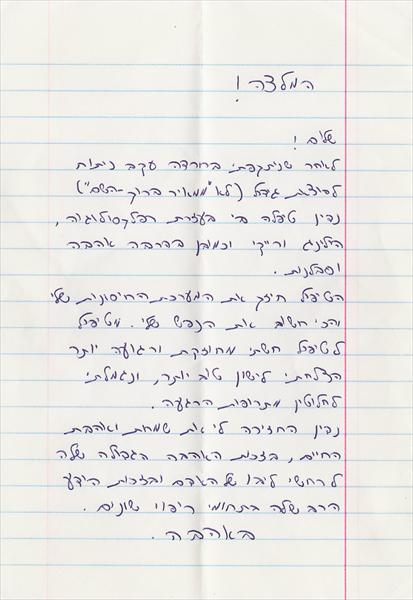 המלצה !
שלום !
לאחר שניתקפתי בחרדה עקב ניתוח
לכריתת גידול (לא ממאיר ברוך-השם)
נדין טיפלה בי בעזרת רפלקסולוגיה,
הילינג ורייקי וכמובן בהרבה אהבה
וסבלנות.
הטיפול חיזק את המערכת החיסונית שלי
והכי חשוב את הנפש שלי. מטיפול
לטיפול חשתי מחוזקת ורגועה יותר
הצלחתי לישון טוב יותר, ונגמלתי
לחלוטין מתרופות הרגעה.
נדין החזירה לי את שמחת ואהבת
החיים, בזכות האהבה הגדולה שלה
לרחשי ליבו של האדם ובזכות הידע
הרב שלה בתחומי ריפוי שונים.
באהבה.